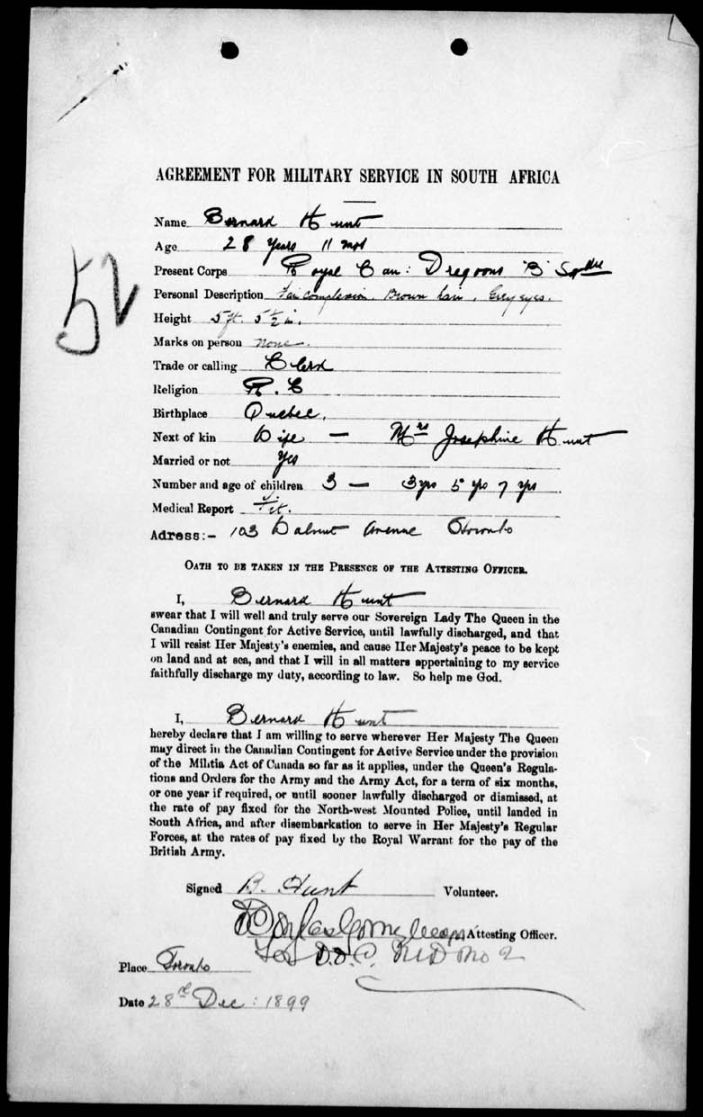 AGREEMENT FOR MILITARY SERVICE IN SOUTH AFRICA
52
Name Bernard Hunt
Age 28 years 11 mos
Present Corps Royal Can: Dragoons "B" Sqdn
Personal Description Fair complexion. Brown hair, Grey eyes.
Height 5 ft. 5½ in.
Marks on person none.
Trade or calling Clerk
Religion R. C
Birthplace Quebec.
Next of kin Wife — Mrs Josephine Hunt
Married or not yes
Number and age of children 3 — 3 yrs 5 yrs 7 yrs
Medical Report Fit.
Adress:- 103 Walnut Avenue Toronto
OATH TO BE TAKEN IN THE PRESENCE OF THE ATTESTING OFFICER.
I, Bernard Hunt
swear that I will well and truly serve our Sovereign Lady The Queen in the
Canadian Contingent for Active Service, until lawfully discharged, and that
I will resist Her Majesty's enemies, and cause Her Majesty's peace to be kept
on land and at sea, and that I will in all matters appertaining to my service
faithfully discharge my duty, according to law. So help me God.
I, Bernard Hunt
hereby declare that I am willing to serve wherever Her Majesty The Queen
may direct in the Canadian Contingent for Active Service under the provision
of the Militia Act of Canada so far as it applies, under the Queen's Regula-
tions and Orders for the Army and the Army Act, for a term of six months,
or one year if required, or until sooner lawfully discharged or dismissed, at
the rate of pay fixed for the North-west Mounted Police, until landed in
South Africa, and after disembarkation to serve in Her Majesty's Regular
Forces, at the rates of pay fixed by the Royal Warrant for the pay of the
British Army.
Signed B. Hunt Volunteer.
Attesting Officer.
D.O.C. M D No 2
Place Toronto
Date 28th Dec: 1899